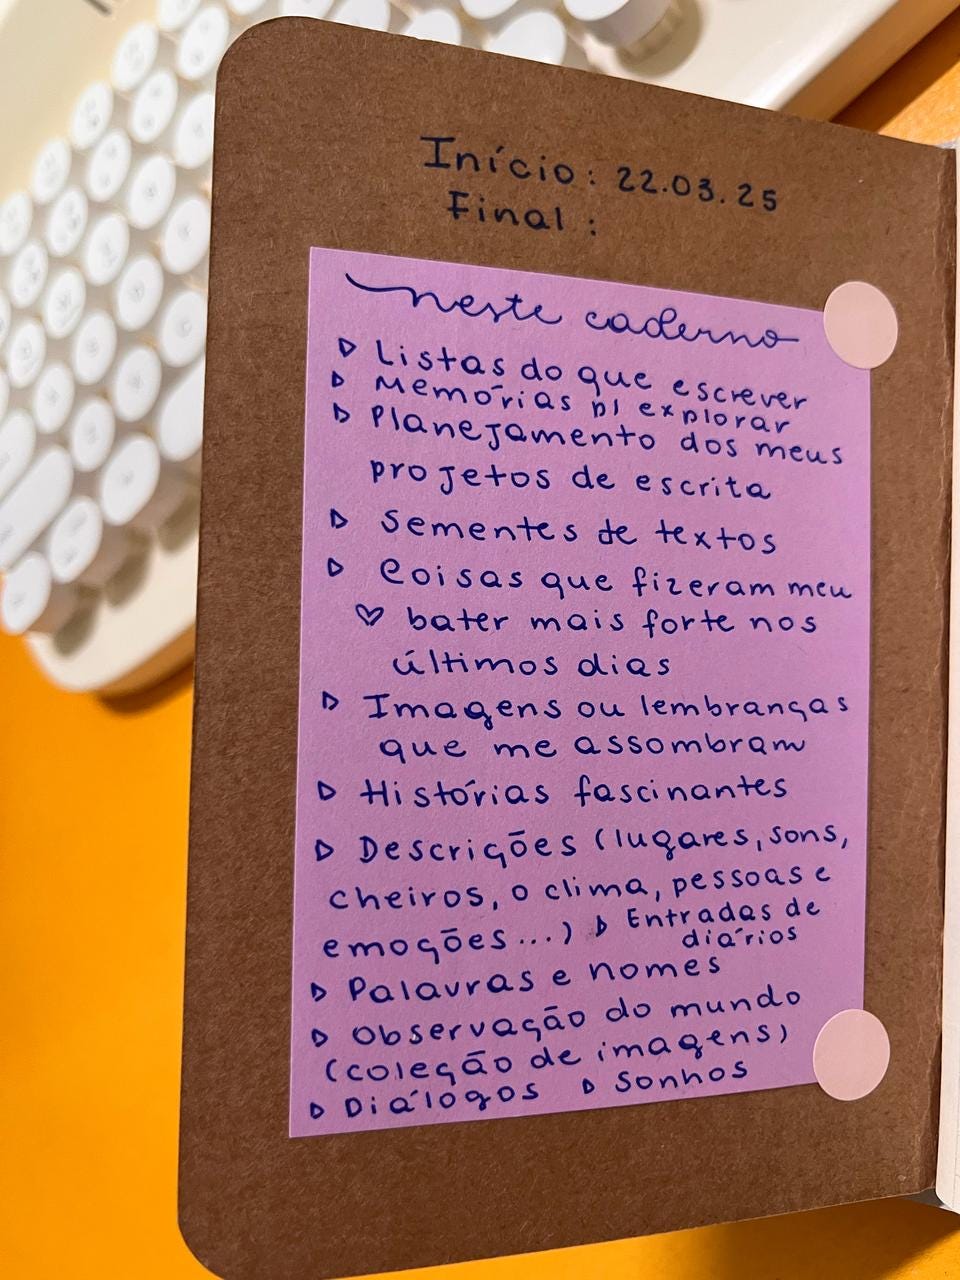 Início: 22.03.25
Final:
neste caderno
▷ Listas do que escrever
▷ Memórias p/ explorar
▷ Planejamento dos meus
projetos de escrita
▷ Sementes de textos
▷ Coisas que fizeram meu
♡ bater mais forte nos
últimos dias
▷ Imagens ou lembranças
que me assombram
▷ Histórias fascinantes
▷ Descrições (lugares, sons,
cheiros, o clima, pessoas e
emoções...) ▷ Entradas de
diários
▷ Palavras e nomes
▷ Observação do mundo
(coleção de imagens)
▷ Diálogos ▷ Sonhos